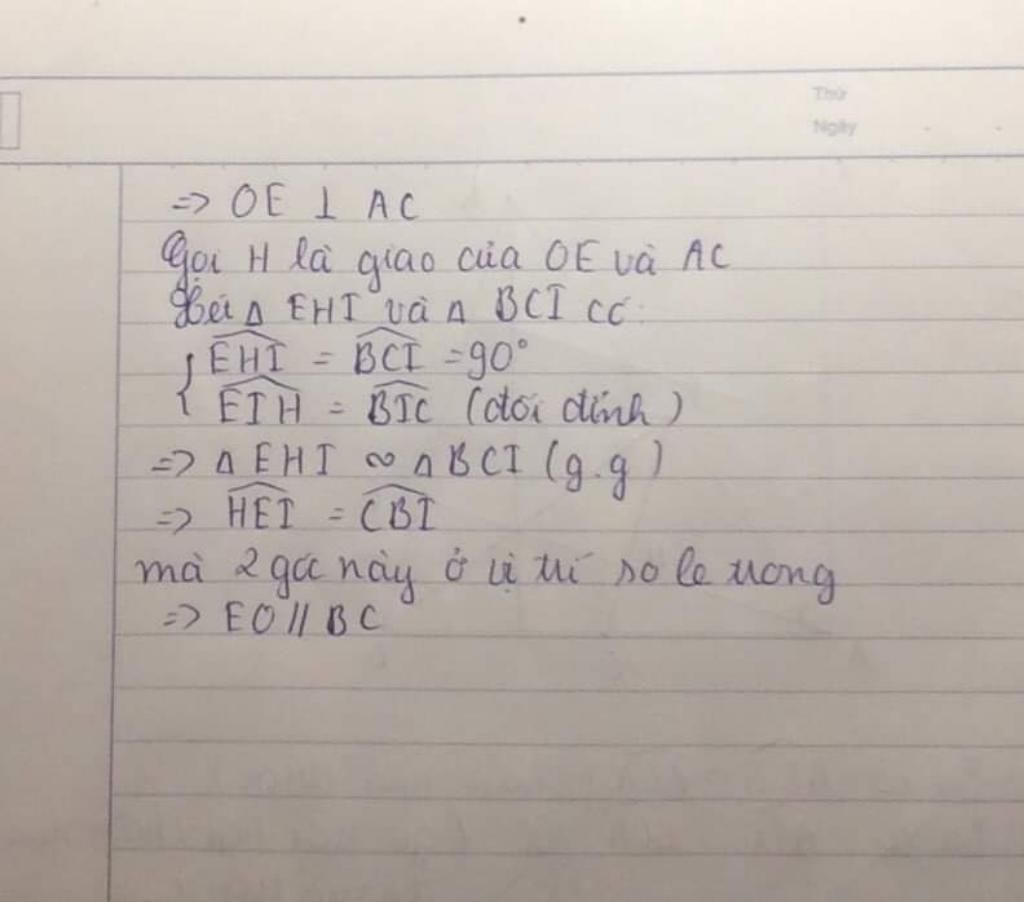 Thứ
Ngày
=> OE ⊥ AC
Gọi H là giao của OE và AC
Xét Δ EHI và Δ BCI có
{ EHI = BCI = 90°
EIH = BIC (đối đỉnh)
=> Δ EHI ∾ Δ BCI (g.g)
=> HEI = CBI
mà 2 góc này ở vị trí so le trong
=> EO // BC